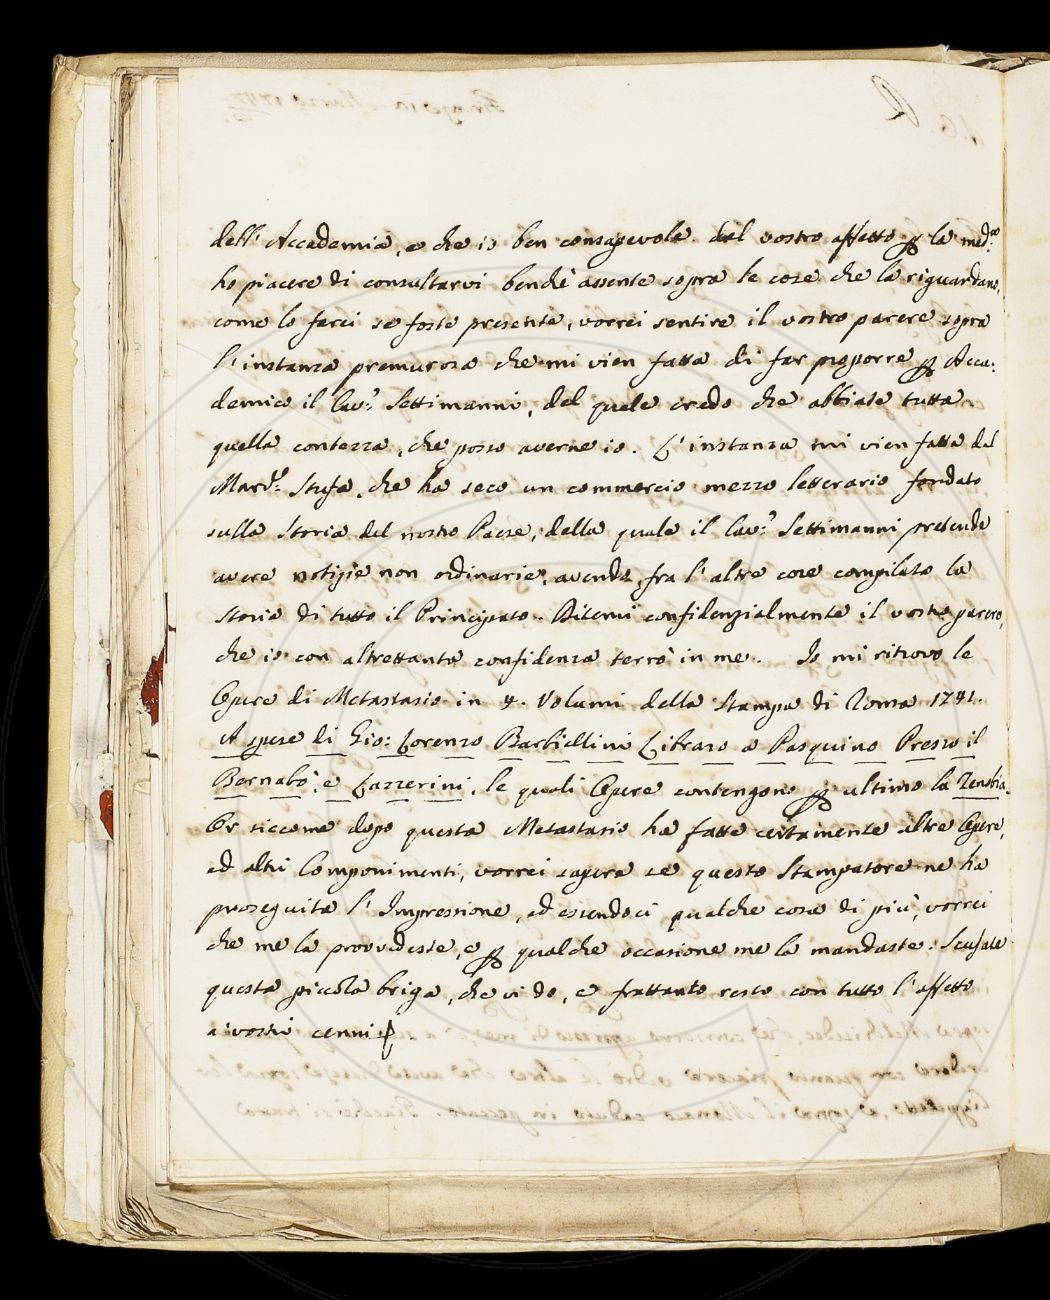 dell' Accademia, e che io ben consapevole del vostro affetto p la med.ma
ho piacere di consultarvi benchè assente sopra le cose che la riguardano,
come lo farei se foste presente, vorrei sentire il vostro parere sopra
l'instanza premurosa che mi vien fatta di far proporre p Acca:
demico il Cav.r Settimanni, del quale credo che abbiate tutta
quella contezza, che posso averne io. L'instanza mi vien fatta dal
March.e Stufa, che ha seco un commercio mezzo letterario fondato
sulla Storia del nostro Paese, della quale il Cav.r Settimanni pretende
avere notizie non ordinarie, avendo, fra l'altre cose compilato la
storia di tutto il Principato. Ditemi confidenzialmente il vostro parere,
che io con altrettanta confidenza terrò in me. Io mi ritrovo le
Opere di Metastasio in 4. Volumi della Stampa di Roma 1741.
A spese di Gio: Lorenzo Barbiellini Libraro a Pasquino Presso il
Bernabò, e Lazzerini, le quali Opere contengono p ultimo la Zenobia.
Or siccome dopo questa Metastasio ha fatte certamente altre Opere,
ed altri Componimenti, vorrei sapere se questo Stampatore ne ha
proseguita l'Impressione, ed essendoci qualche cosa di più, vorrei
che me la provvedeste, e p qualche occasione me la mandaste. Scusate
questa piccola briga, che vi do, e frattanto resto con tutto l'affetto
a' vostri cenni